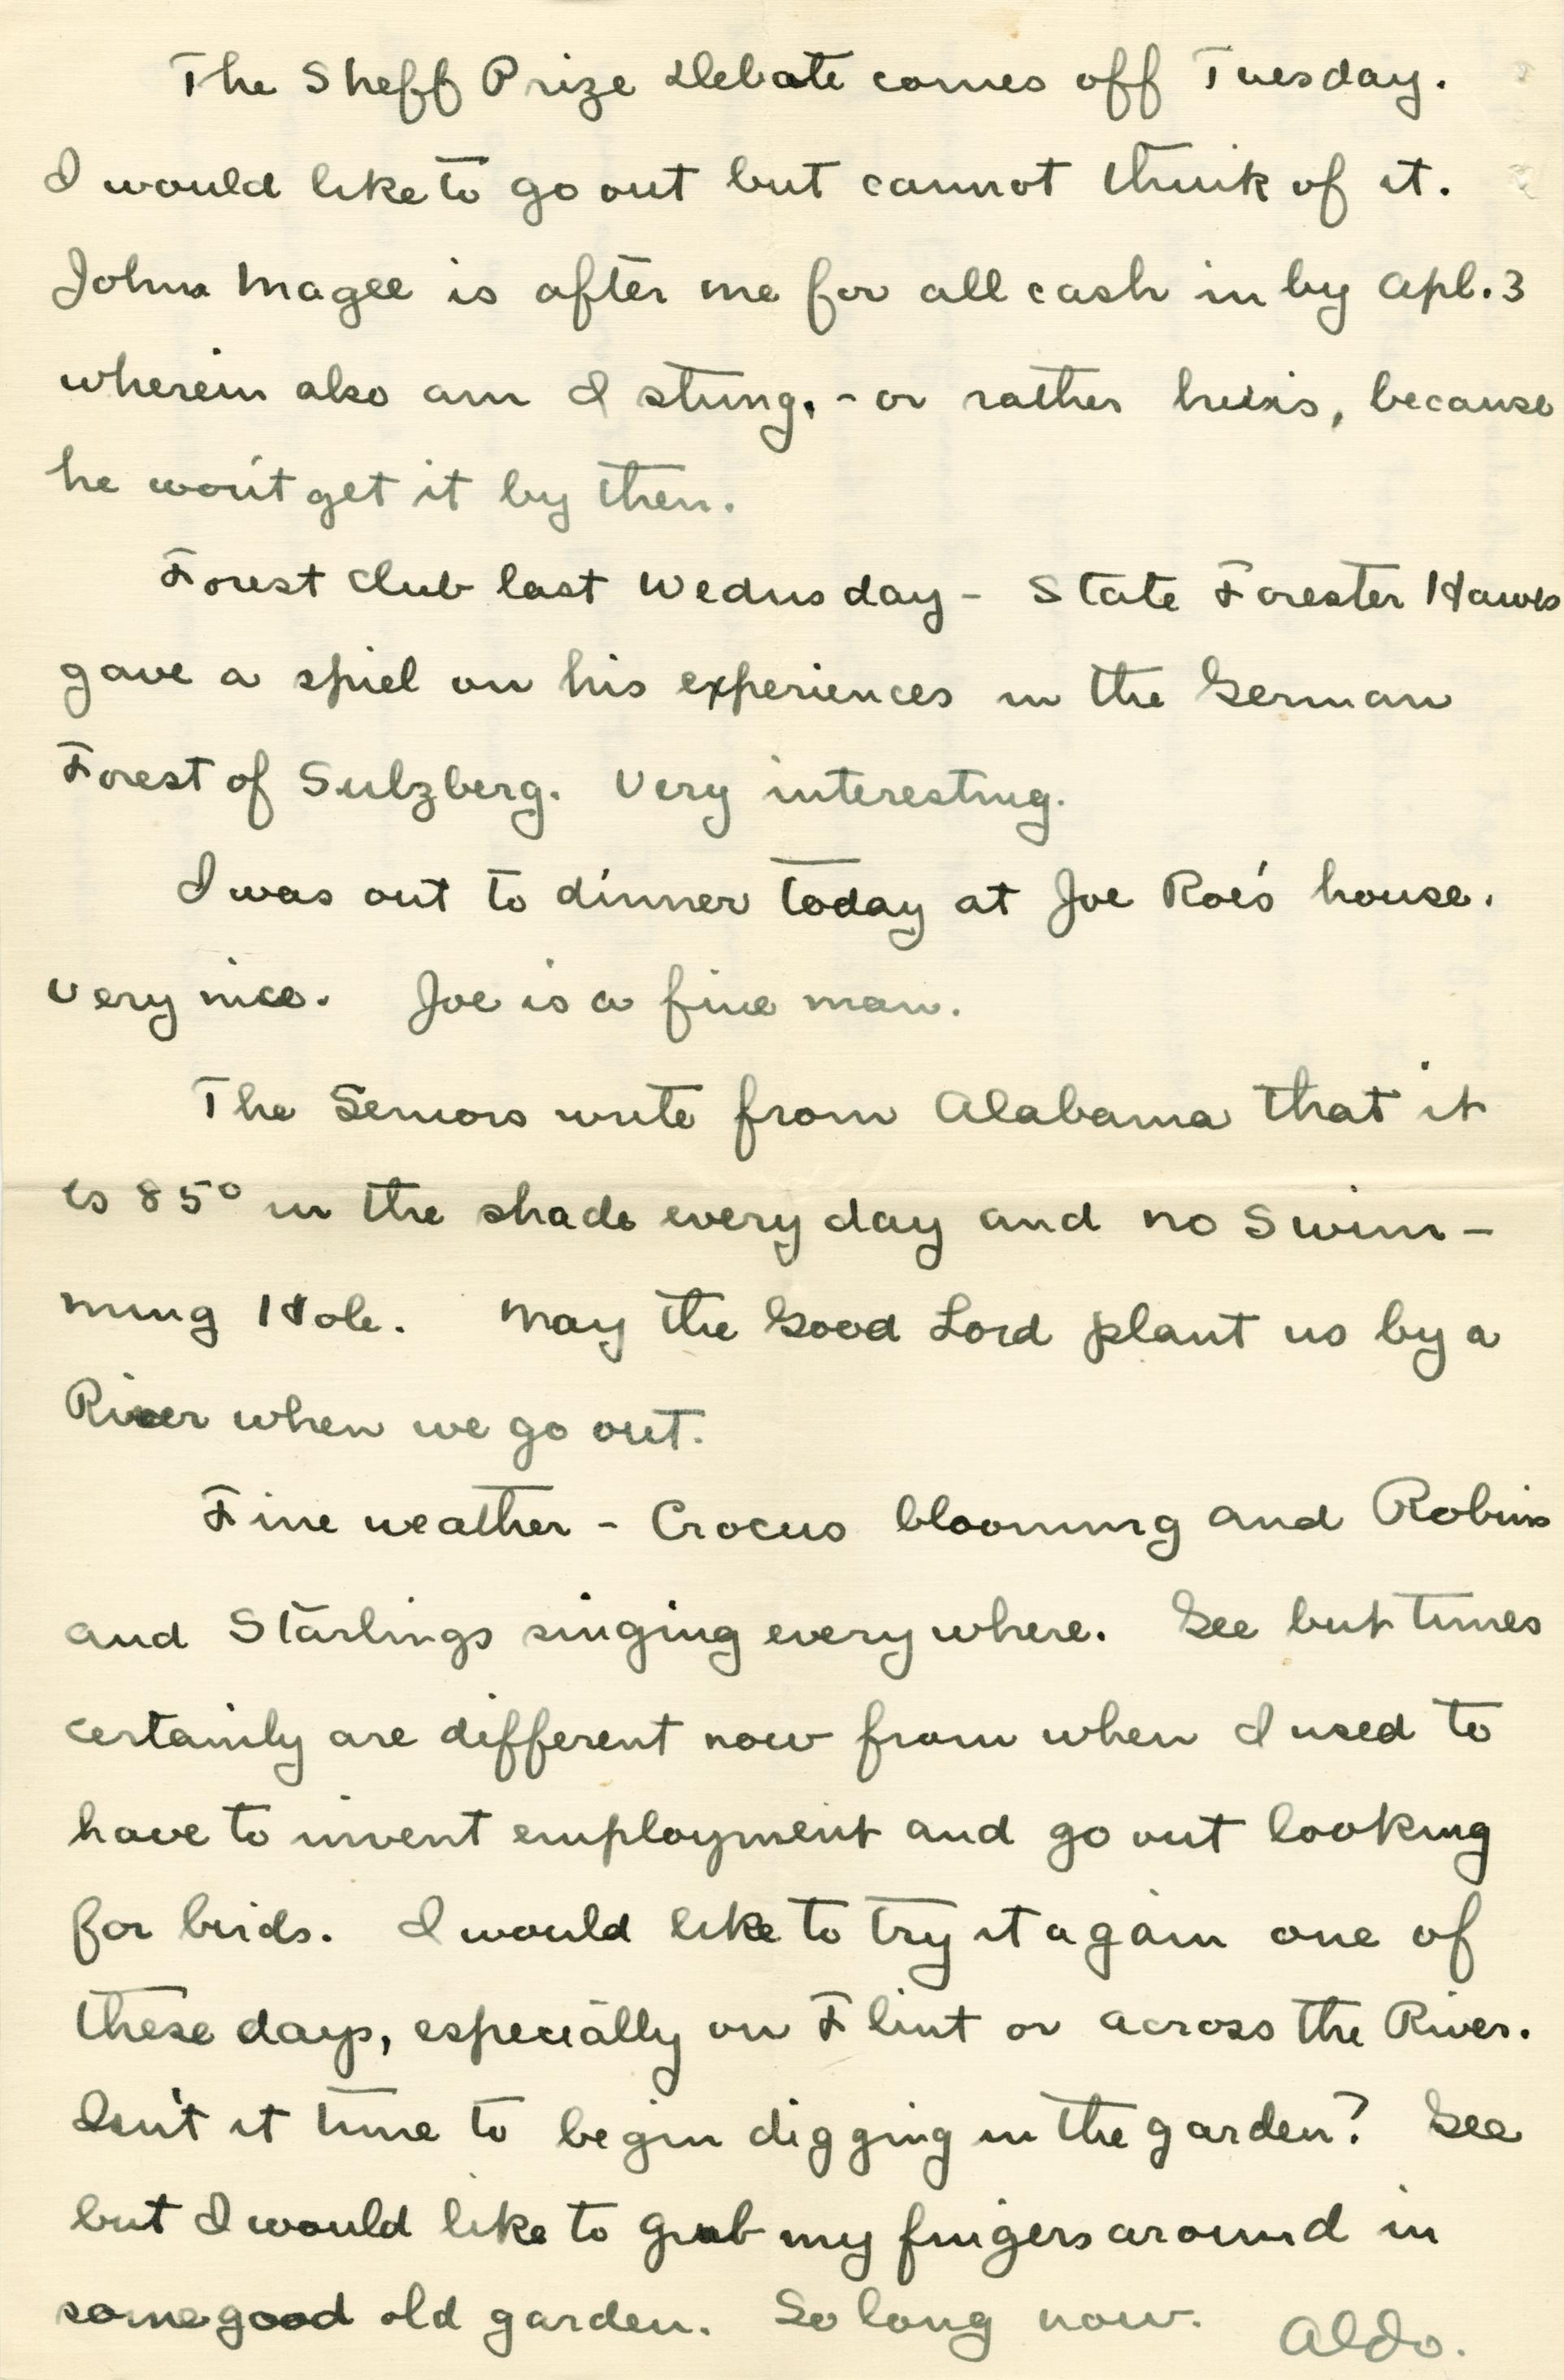 The Sheff Prize Debate comes off Tuesday.
I would like to go out but cannot think of it.
John Magee is after me for all cash in by Apl. 3
wherein also am I stung, - or rather he is, because
he won't get it by then.
Forest Club last Wednesday - State Forester Hawes
gave a spiel on his experiences in the German
Forest of Sulzberg. Very interesting.
I was out to dinner today at Joe Roe's house.
Very nice. Joe is a fine man.
The Seniors write from Alabama that it
is 85° in the shade every day and no Swim-
ming Hole. May the Good Lord plant us by a
River when we go out.
Fine weather - Crocus blooming and Robins
and Starlings singing everywhere. Gee but times
certainly are different now from when I used to
have to invent employment and go out looking
for birds. I would like to try it again one of
these days, especially on Flint or across the River.
Isn't it time to begin digging in the garden? Gee
but I would like to grub my fingers around in
some good old garden. So long now. Aldo.